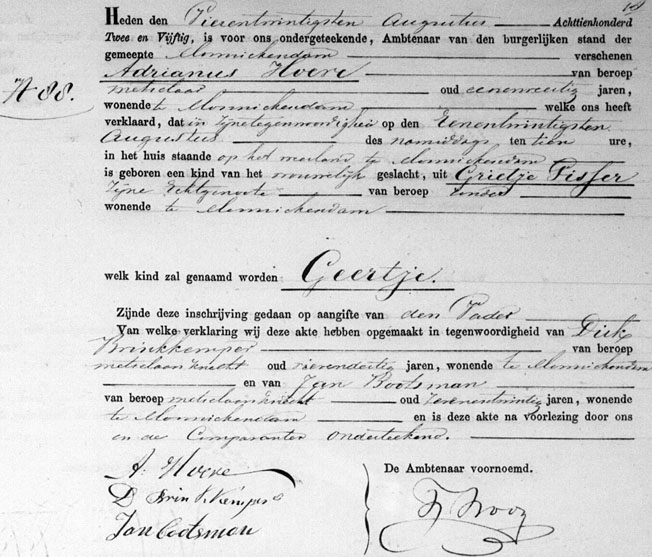 Heden den Vierentwintigsten Augustus Achttienhonderd
Twee en Vijftig, is voor ons ondergeteekende, Ambtenaar van den burgerlijken stand der
gemeente Monnickendam verschenen
Adrianus Hoeve van beroep
N 88.
metselaar oud eenendertig jaren,
wonende te Monnickendam welke ons heeft
verklaard, dat in zijne tegenwoordigheid op den Eenentwintigsten
Augustus des namiddags ten tien ure,
in het huis staande op het te Monnickendam
is geboren een kind van het vrouwelijk geslacht, uit Grietje Visser
zijne Echtgenoote van beroep zonder
wonende te Monnickendam
welk kind zal genaamd worden Geertje.
Zijnde deze inschrijving gedaan op aangifte van den Vader
Van welke verklaring wij deze akte hebben opgemaakt in tegenwoordigheid van Dirk
Brinkkemper van beroep
metselaarsknecht oud vierendertig jaren, wonende te Monnickendam
en van Jan Bootsman
van beroep metselaarsknecht oud zevenentwintig jaren, wonende
te Monnickendam en is deze akte na voorlezing door ons
en de Comparanten onderteekend.
De Ambtenaar voornoemd.
A. Hoeve
D Brinkkemper
Jan bootsman